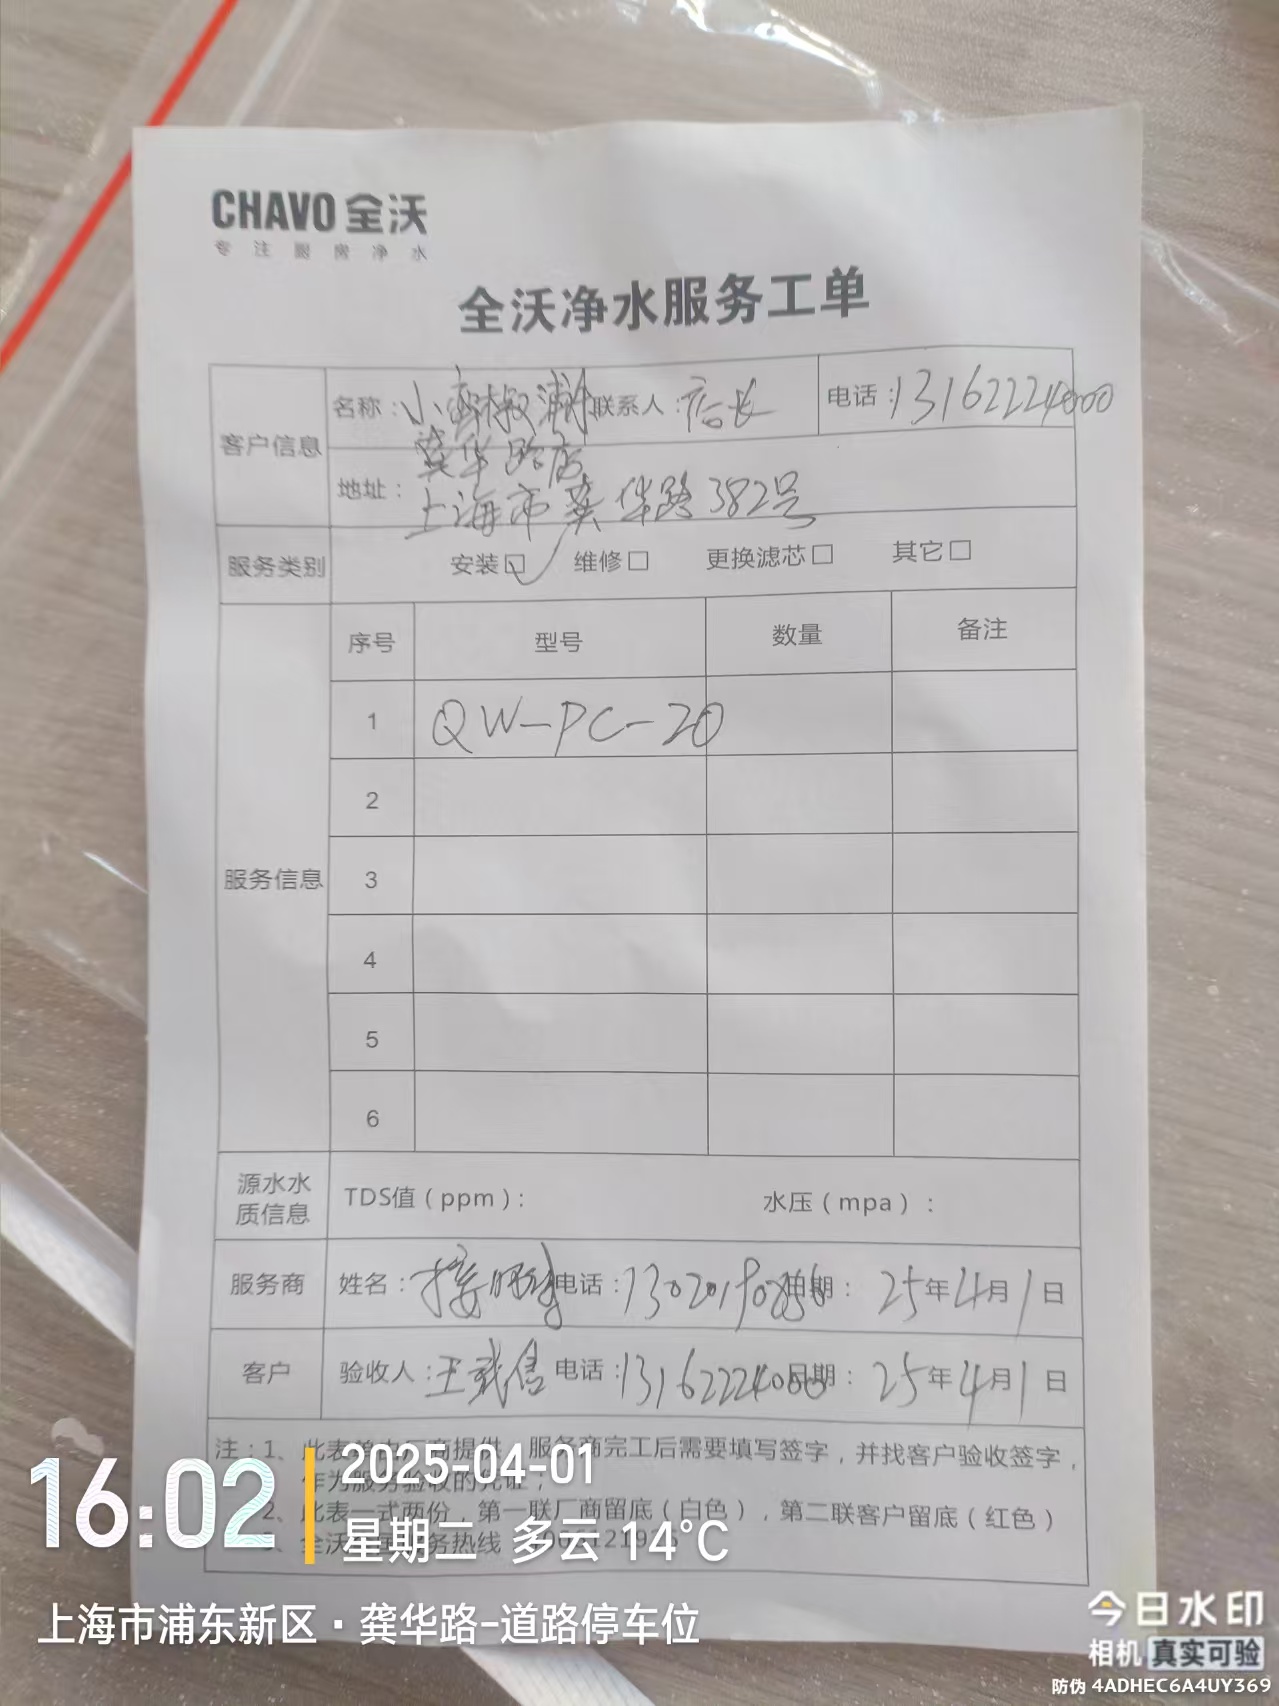 CHAVO 全沃
专注厨房净水
全沃净水服务工单
客户信息
名称：小 浦 联系人：店长 电话：13162224000
龚华路店
地址：上海市龚华路382号
服务类别 安装☑ 维修□ 更换滤芯□ 其它□
服务信息
序号 型号 数量 备注
1 QW-PC-20
2
3
4
5
6
源水水质信息 TDS值（ppm）： 水压（mpa）：
服务商 姓名： 电话：130201 日期：25年4月1日
客户 验收人：王 信 电话：13162224000 日期：25年4月1日
注：1、此表单由厂商提供，服务商完工后需要填写签字，并找客户验收签字，
作为服务验收的凭证；
2、此表一式两份，第一联厂商留底（白色），第二联客户留底（红色）
全沃 务热线
16:02
2025-04-01
星期二 多云 14℃
上海市浦东新区·龚华路-道路停车位
今日水印
相机 真实可验
防伪 4ADHEC6A4UY369